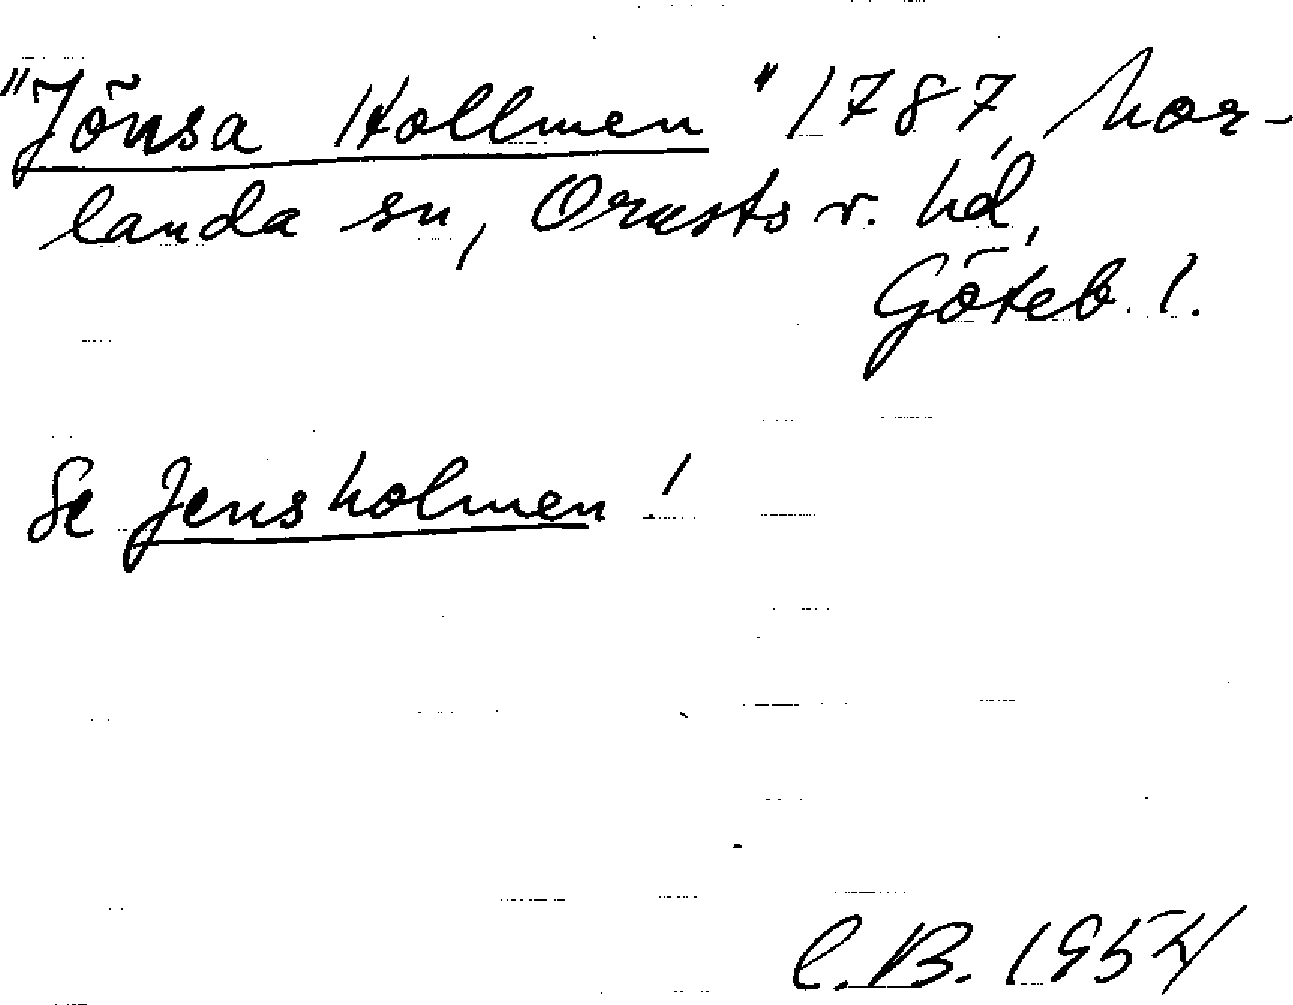 "Jönsa Hollmen" 1787, Mor-
landa sn, Orusts v. hd,
Göteb. l.
Se Jensholmen!
C.B. 1954